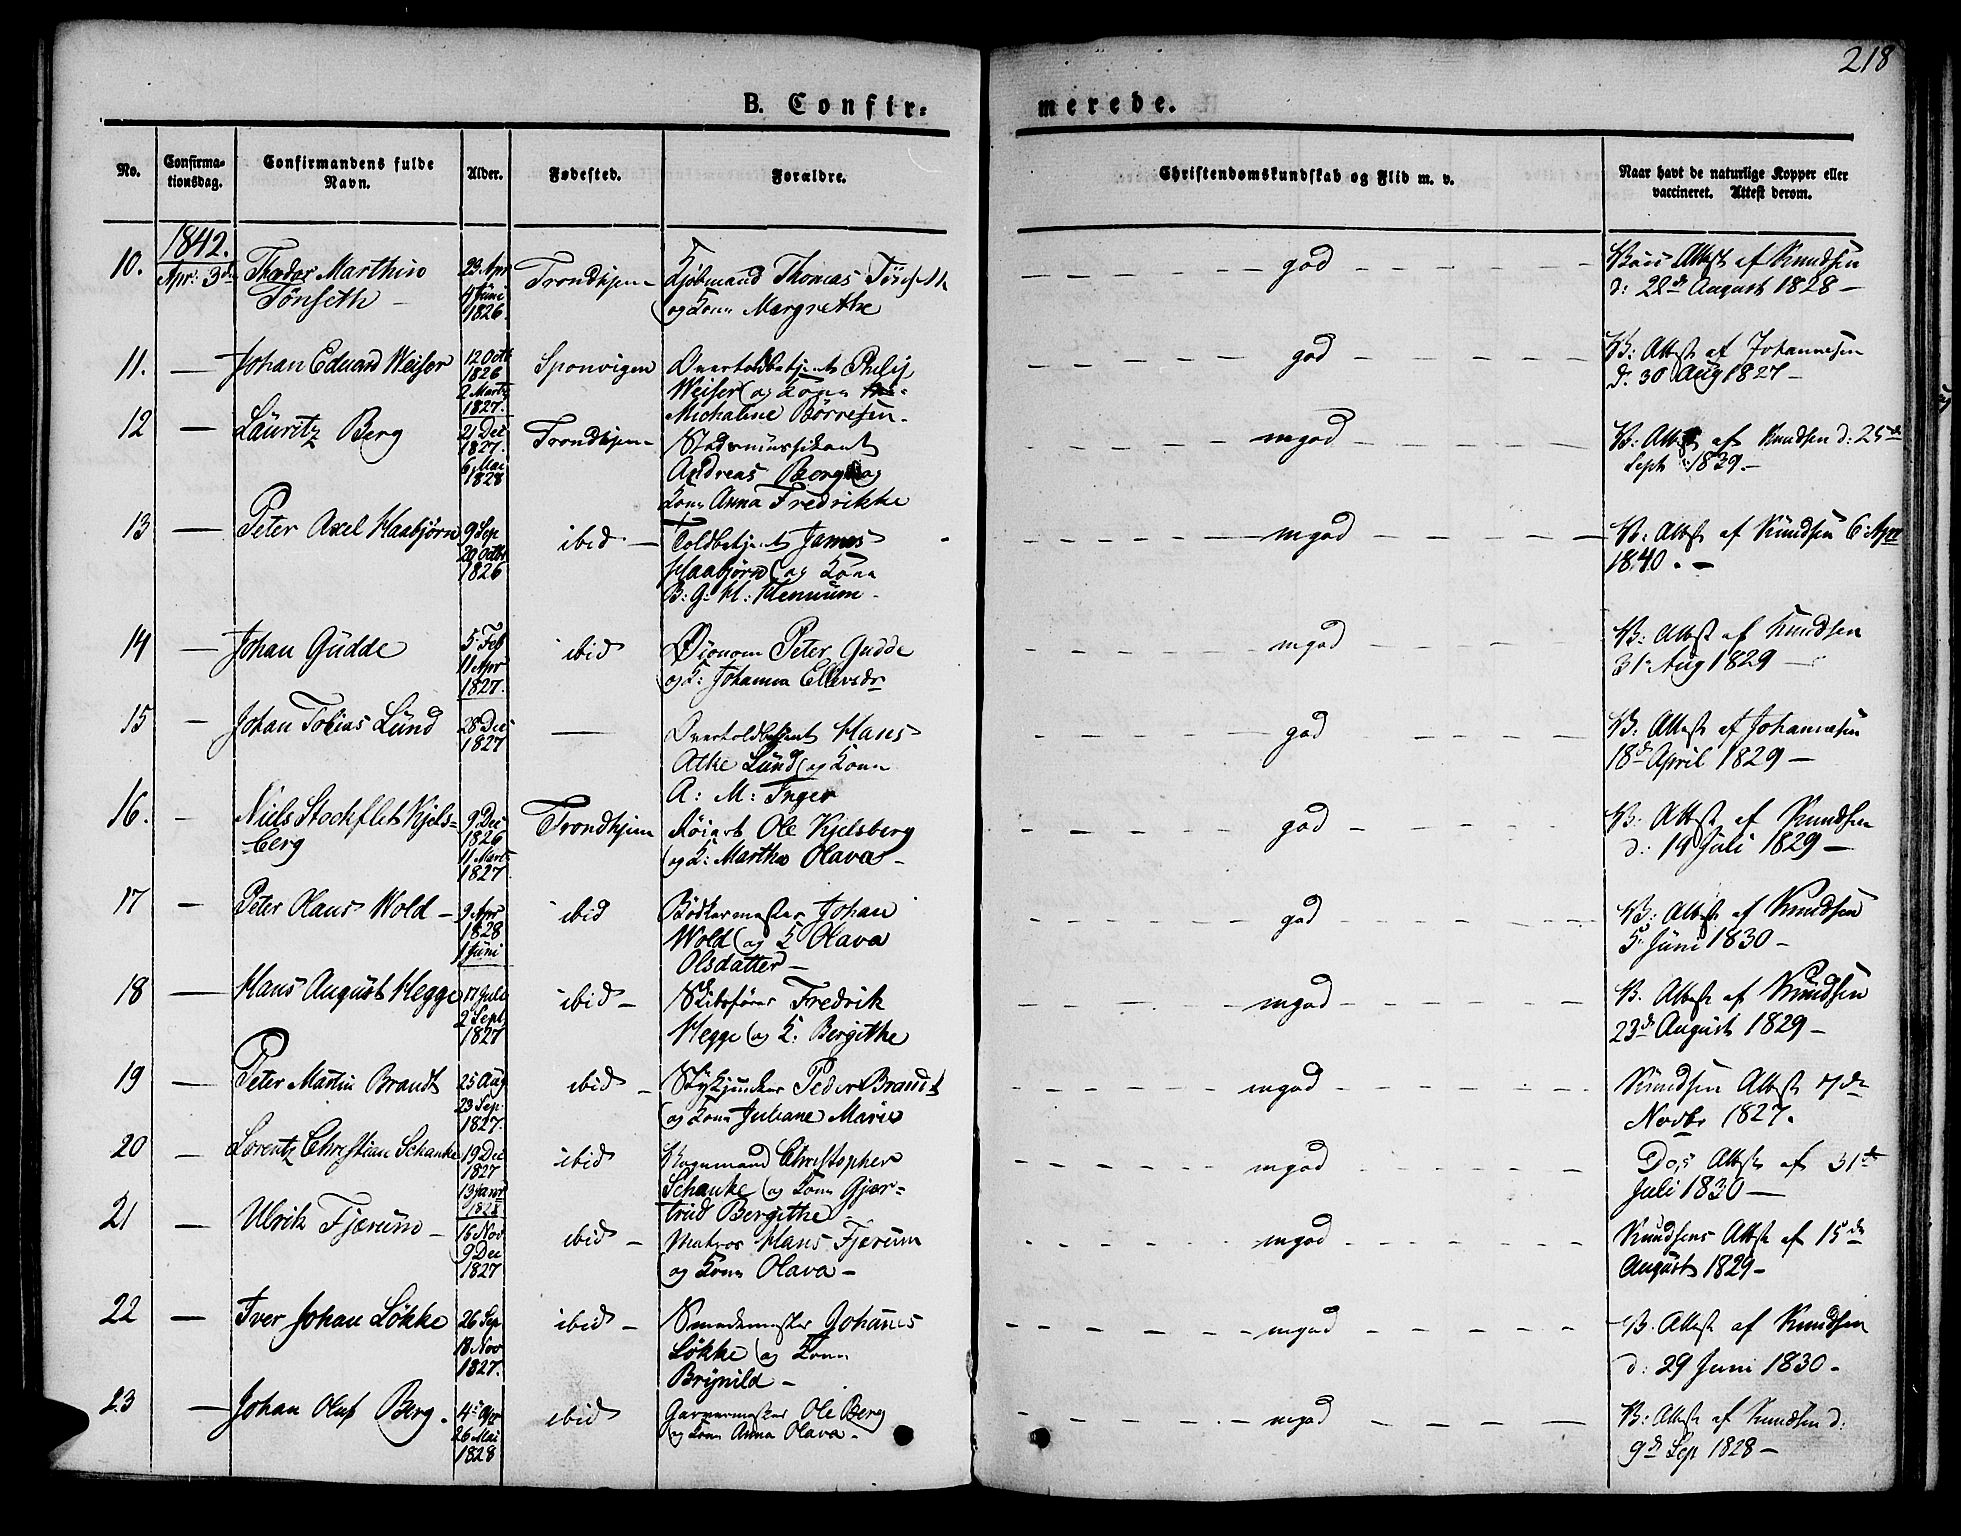 218
B. Confir: merede.
No.
Confirma-
tionsdag.
Confirmandens fulde
Navn.
Alder.
Fødested.
Forældre.
Christendomskundskab og Flid m. v.
Naar havt de naturlige Kopper eller
vaccineret. Attest derom.
1842.
10. Apr: 3d Thodor Marthin 23 Apr Trondhjem Kjøbmand Thomas Tönseth god Attest af Knudsen
Tönseth 4 Juni 1826. og Kone Margrethe d: 22d August 1828
11. Johan Eduard Weiser 12 Octb Sponvigen Overtoldbetjent Philip god V: Attest af Johannesen
1826 Weiser og Kone d. 30 Aug 1827
2 Marts 1827. Michaline Börresen
12 Lauritz Berg 21 Dec Trondhjem Stadsmusikant mgod V: Attest af Knudsen d: 25de
1827. Andreas Berg og Sept 1839.
6 Mai 1828 Kone Anna Fredrikke
13 Peter Axel Haabjörn 9 Sep ibid Toldbetjent James mgod V: Attest af Knudsen 6: Apr
20 Octbr Haabjörn og Kone 1840.
1826 B: G: H: Klenuum
14 Johan Gudde 5 Feb ibid Öconom Peter Gudde mgod V: Attest af Knudsen
11 Apr 1827. og K: Johanna Ellevsdr 31 Aug 1829
15 Johan Tobias Lund 28 Dec Overtoldbetjent Hans god V: Attest af Johannesen
1827 Atke Lund og Kone 18d April 1829
A: M: Inger
16. Niels Stockflet Kjels- 9 Dec Trondhjem Ole Kjelsberg god V: Attest af Knudsen
berg 1826 og K: Martha Olava d: 14 Juli 1829
11 Marts
1827
17 Peter Olaus Wold 9 Apr ibid Bödkermester Johan god V: Attest af Knudsen
1828 Wold og K Olava 5 Juni 1830
1 Juni Olsdatter
18 Hans August Hegge 17 Juli ibid Skibsförer Fredrik mgod V. Attest af Knudsen
2 Sept Hegge og K. Bergithe 23d August 1829
1827
19 Peter Martin Brandt 25 Aug ibid Stykjunker Peder Brandt mgod Knudsen Attest 7de
23 Sep. og Kone Juliane Marie Novbr 1827.
1827.
20 Lorentz Christian Schanke 19 Dec ibid Vognmand Christopher mgod Do's Attest af 31te
1827 Schanke og Kone Gjer- Juli 1830
13 Janr 1828 trud Bergithe
21 Ulrik Fjærum 16 Nov ibid Matros Hans Fjærum mgod Knudsens Attest af 15de
9 Dec og Kone Olava August 1829
1827
22 Iver Johan Lökke 26 Sep ibid Smedemester Johanes mgod V. Attest af Knudsen
18 Nov Lökke og Kone d: 29 Juni 1830
1827. Brynild
23 Johan Oluf Berg. 4 Apr ibid Garvermester Ole Berg mgod V: Attest af Knudsen d:
26 Mai og Kone Anna Olava 9d Sep 1828
1828